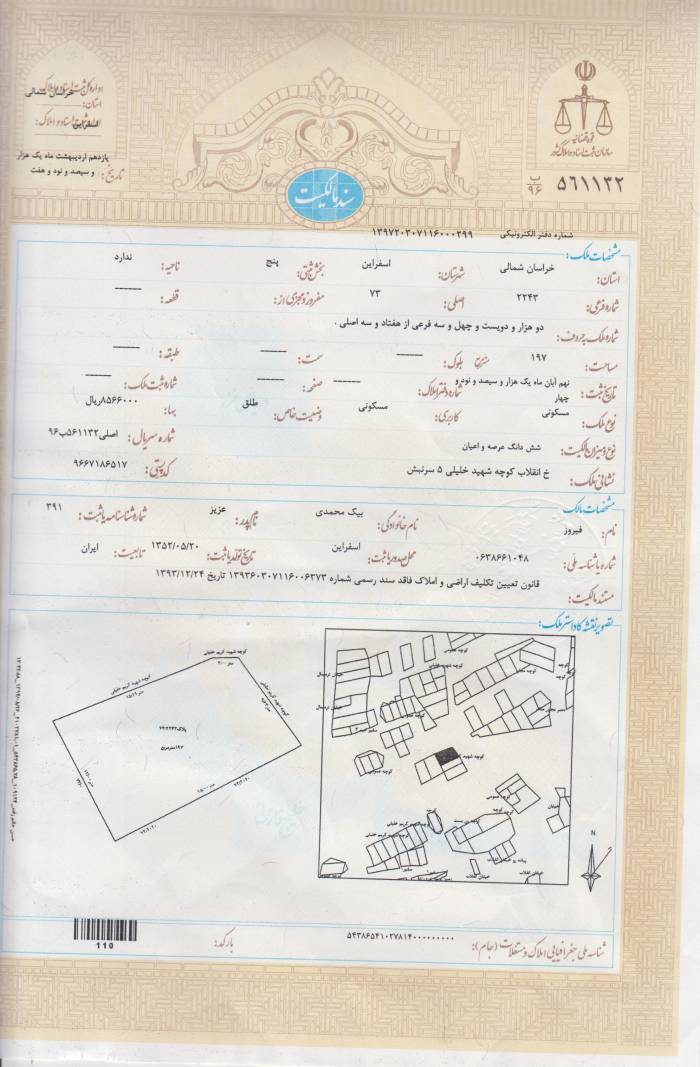 قوه قضائیه
سازمان ثبت اسناد و املاک کشور
۵۶۱۱۳۲ ب ۹۶
اداره کل ثبت اسناد و املاک
استان: خراسان شمالی
اداره ثبت اسناد و املاک: اسفراین
تاریخ: یازدهم اردیبهشت ماه یک هزار و سیصد و نود و هفت
سند مالکیت
شماره دفتر الکترونیکی ۱۳۹۷۲۰۳۰۷۱۱۶۰۰۰۲۹۹
مشخصات ملک:
استان: خراسان شمالی شهرستان: اسفراین بخش ثبتی: پنج ناحیه: ندارد
شماره فرعی: ۲۲۴۳ اصلی: ۷۳ مفروز و مجزی از: ------ قطعه: ------
شماره ملک به حروف: دو هزار و دویست و چهل و سه فرعی از هفتاد و سه اصلی .
مساحت: ۱۹۷ مترمربع بلوک: ------ سمت: ------ طبقه: ------
تاریخ ثبت: نهم آبان ماه یک هزار و سیصد و نود و چهار شماره دفتر املاک: ------ صفحه: ------ شماره ثبت ملک: ------
نوع ملک: مسکونی کاربری: مسکونی وضعیت خاص: طلق بها: ۸۵۶۶۰۰۰ریال
نوع و میزان مالکیت: شش دانگ عرصه و اعیان شماره سریال: اصلی۵۶۱۱۳۲ب۹۶
نشانی ملک: خ انقلاب کوچه شهید خلیلی ۵ سرنبش کد پستی: ۹۶۶۷۱۸۶۵۱۷
مشخصات مالک
نام: فیروز نام خانوادگی: بیک محمدی نام پدر: عزیز شماره شناسنامه یا ثبت: ۳۹۱
شماره یا شناسه ملی: ۰۶۳۸۶۶۱۰۴۸ محل صدور یا ثبت: اسفراین تاریخ تولد یا ثبت: ۱۳۵۲/۰۵/۲۰ تابعیت: ایران
مستند مالکیت: قانون تعیین تکلیف اراضی و املاک فاقد سند رسمی شماره ۱۳۹۳۶۰۳۰۷۱۱۶۰۰۶۳۷۳ تاریخ ۱۳۹۳/۱۲/۲۴
تصویر نقشه کاداستر ملک:
کوچه شهید کریم خلیلی
کوچه شهید کریم خلیلی
کوچه شهید کریم خلیلی
پلاک۷۳/۲۲۴۳
۱۹۷مترمربع
N
شناسه ملی جغرافیایی املاک و مستغلات (جام): ۵۴۳۸۶۵۴۱۰۲۷۸۱۴۰۰۰۰۰۰۰۰۰
بارکد:
110